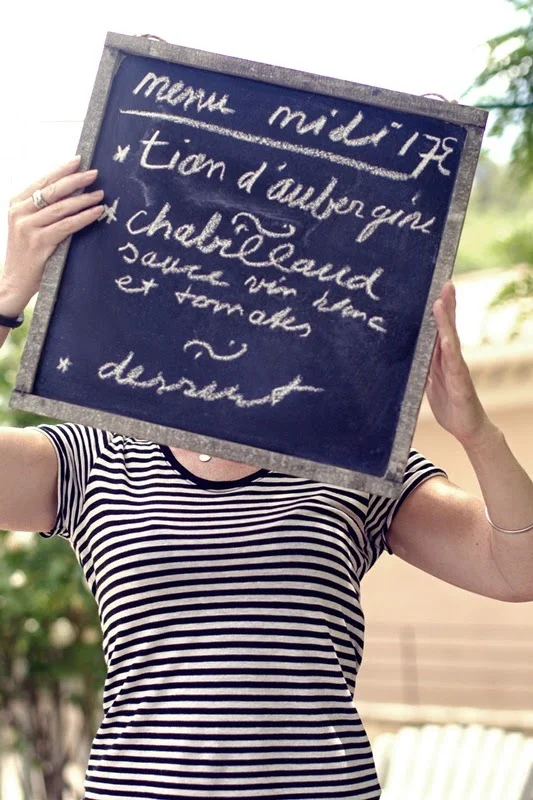 menu midi 17€
* tian d'aubergine
* chabillaud
sauce vin blanc
et tomates
~
* dessert